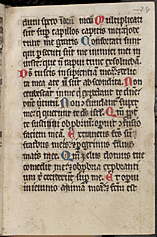 dum spero in deum meū Multiplicati
sunt sup capillos capitis mei q̄ ode
runt me gratis Confortati sunt
qui psecuti sunt me inimici mei in
iuste que n̄ rapui tunc exsoluebā
Deus tu scis insipientiā meā et deli
cta mea a te n̄ sūt abscōdita Non
erubescant in me qui expectāt te dn̄e
dn̄e uirtutū Non confundant̄ super
me qui querūt te deus isrl Qm̄ ppt
te sustinui obprobriū operuit cōfusio
faciem meā Extraneus factus sū
fratribus meis et peregrinus filiis
matris mee Qm̄ zelus domus tue
comedit me et obprobria exprobranti
um t̄ ceciderūt sup me Et operui
in ieiunio animā meā et factū est